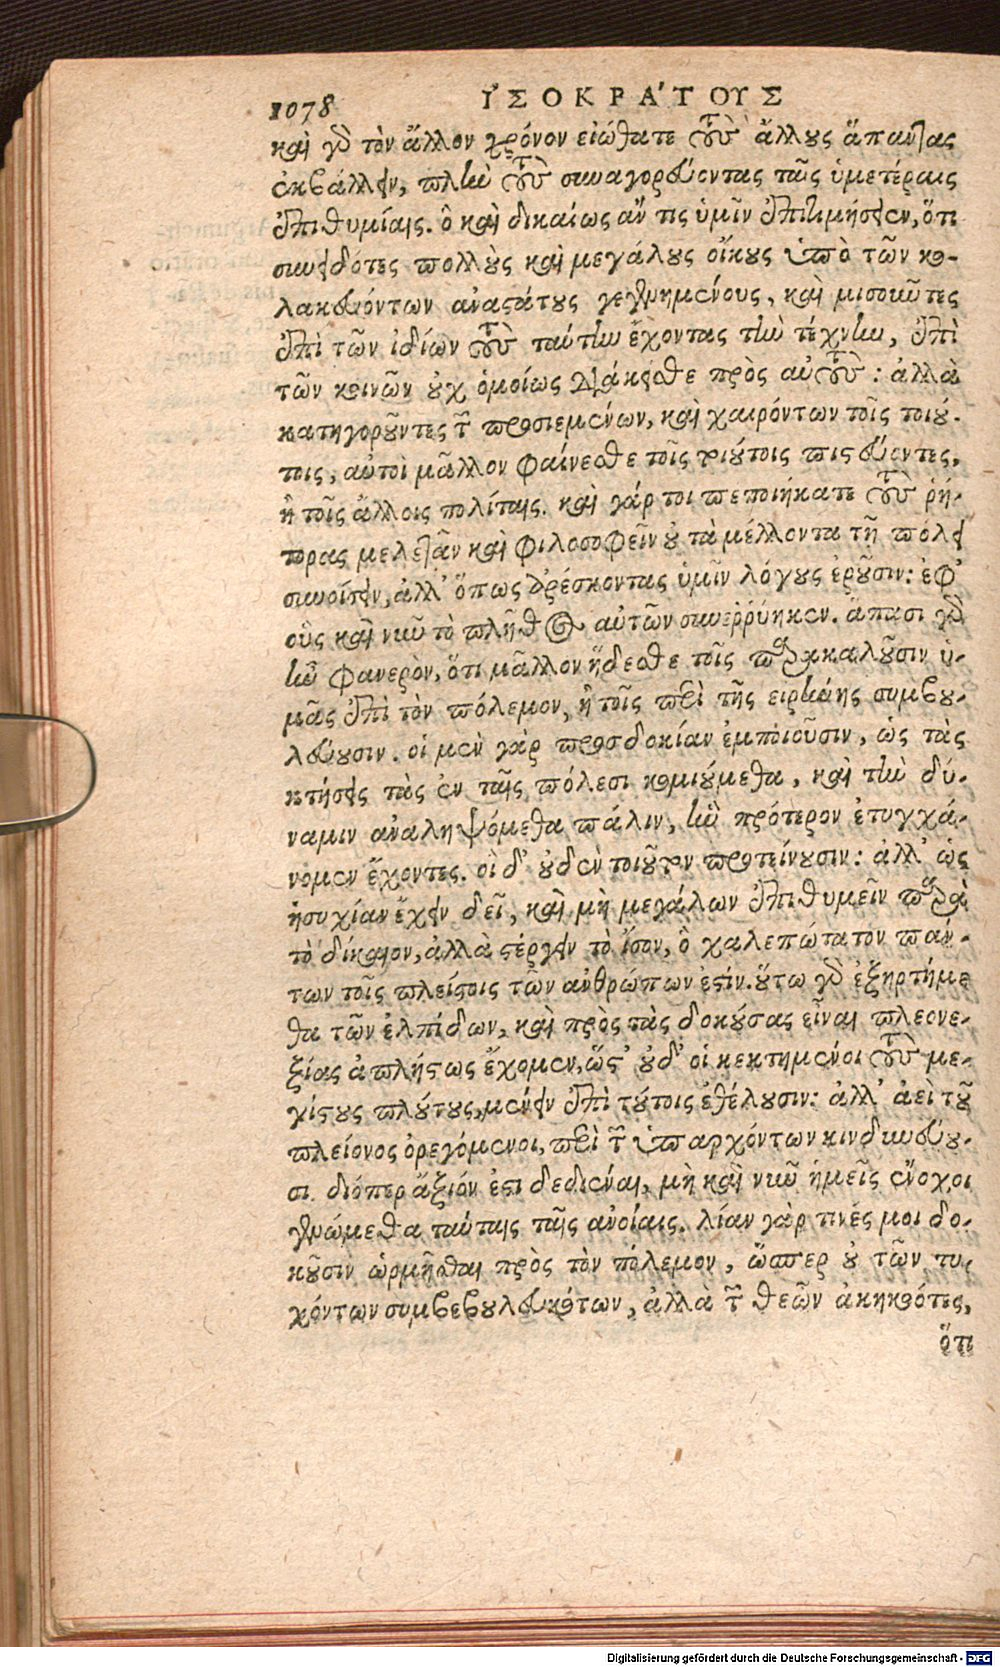 1078 ἸΣΟΚΡΆΤΟΥΣ
καὶ γὰρ τὸν ἄλλον χρόνον εἰώθατε τοὺς ἄλλους ἅπαντας
ἐκβάλλειν, πλὴν τοὺς συναγορεύοντας ταῖς ὑμετέραις
ἐπιθυμίαις. ὃ καὶ δικαίως ἄν τις ὑμῖν ἐπιτιμήσειεν, ὅτι
συνειδότες πολλοὺς καὶ μεγάλους οἴκους ὑπὸ τῶν κο-
λακευόντων ἀναστάτους γεγενημένους, καὶ μισοῦντες
ἐπὶ τῶν ἰδίων τοὺς ταύτην ἔχοντας τὴν τέχνην, ἐπὶ
τῶν κοινῶν οὐχ ὁμοίως διάκεισθε πρὸς αὐτοὺς: ἀλλὰ
κατηγοροῦντες τῶν προσιεμένων, καὶ χαιρόντων τοῖς τοιού-
τοις, αὐτοὶ μᾶλλον φαίνεσθε τοῖς τοιούτοις πιστεύοντες,
ἢ τοῖς ἄλλοις πολίταις. καὶ γάρ τοι πεποιήκατε τοὺς ῥή-
τορας μελετᾶν καὶ φιλοσοφεῖν οὐ τὰ μέλλοντα τῇ πόλει
συνοίσειν, ἀλλ' ὅπως ἀρέσκοντας ὑμῖν λόγους ἐροῦσιν: ἐφ'
οὓς καὶ νῦν τὸ πλῆθος αὐτῶν συνερρύηκεν. ἅπασι γὰρ
ἦν φανερὸν, ὅτι μᾶλλον ἥδεσθε τοῖς παρακαλοῦσιν ὑ-
μᾶς ἐπὶ τὸν πόλεμον, ἢ τοῖς περὶ τῆς εἰρήνης συμβου-
λεύουσιν. οἱ μὲν γὰρ προσδοκίαν ἐμποιοῦσιν, ὡς τὰς
κτήσεις τὰς ἐν ταῖς πόλεσι κομιούμεθα, καὶ τὴν δύ-
ναμιν ἀναληψόμεθα πάλιν, ἣν πρότερον ἐτυγχά-
νομεν ἔχοντες. οἱ δ' οὐδὲν τοιοῦτον προτείνουσιν: ἀλλ' ὡς
ἡσυχίαν ἔχειν δεῖ, καὶ μὴ μεγάλων ἐπιθυμεῖν παρὰ
τὸ δίκαιον, ἀλλὰ στέργειν τὸ ἴσον, ὃ χαλεπώτατον πάν-
των τοῖς πλείστοις τῶν ἀνθρώπων ἐστίν. οὕτω γὰρ ἐξηρτήμε
θα τῶν ἐλπίδων, καὶ πρὸς τὰς δοκούσας εἶναι πλεονε-
ξίας ἀπλήστως ἔχομεν, ὥστ' οὐδ' οἱ κεκτημένοι τοὺς με-
γίστους πλούτους, μένειν ἐπὶ τούτοις ἐθέλουσιν: ἀλλ' ἀεὶ τοῦ
πλείονος ὀρεγόμενοι, περὶ τῶν ὑπαρχόντων κινδυνεύου-
σι. διόπερ ἄξιόν ἐστι δεδιέναι, μὴ καὶ νῦν ἡμεῖς ἔνοχοι
γενώμεθα ταύταις ταῖς ἀνοίαις. λίαν γάρ τινές μοι δο-
κοῦσιν ὡρμῆσθαι πρὸς τὸν πόλεμον, ὥσπερ οὐ τῶν τυ-
χόντων συμβεβουλευκότων, ἀλλὰ τῶν θεῶν ἀκηκοότες,
ὅτι
Digitalisierung gefördert durch die Deutsche Forschungsgemeinschaft - DFG